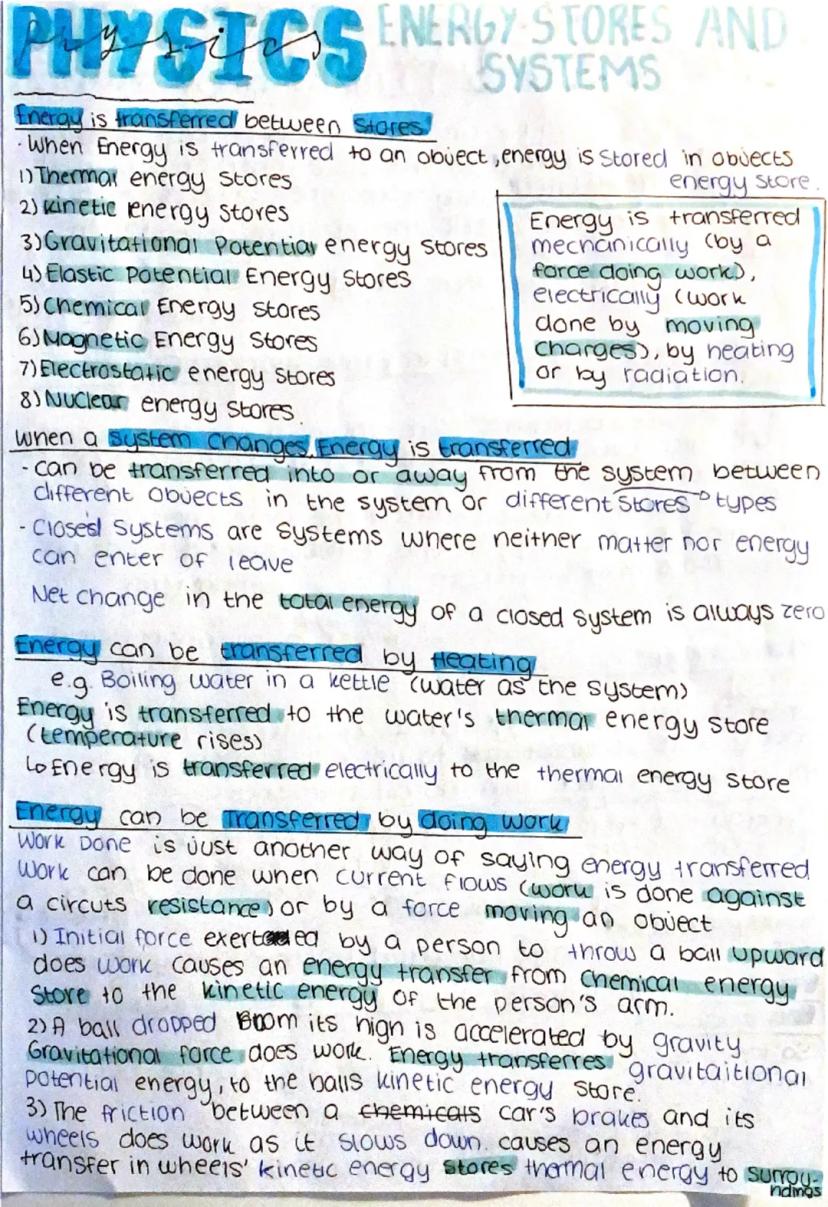 PHYSICS
physics
ENERGY STORES AND
SYSTEMS
Energy is transferred between stores
· When Energy is transferred to an object, energy is stored in objects
energy store.
1) Thermal energy stores
2) kinetic energy Stores
3) Gravitational Potential energy stores
4) Elastic Potential Energy Stores
5) Chemical Energy stores
6) Magnetic Energy Stores
7) Electrostatic energy stores
8) Nuclear energy stores
Energy is transferred
mechanically (by a
force doing work),
electrically (work
done by moving
charges), by heating
or by radiation.
when a system changes, Energy is transferred
- can be transferred into or away from the system between
different objects in the system or different stores types
- Closed Systems are systems where neither matter nor energy
can enter of leave
Net change in the total energy of a closed system is always zero
Energy can be transferred by Heating
e.g. Boiling water in a kettle (water as the system)
Energy is transferred to the water's thermal energy store
(temperature rises)
↳ Energy is transferred electrically to the thermal energy store
Energy can be Transferred by doing work
Work Done is just another way of saying energy transferred
Work can be done when current flows (work is done against
a circuts resistance) or by a force moving an object
1) Initial force exerted by a person to throw a ball upward
does work causes an energy transfer from chemical energy
store to the kinetic energy of the person's arm.
2) A ball dropped from its high is accelerated by gravity
Gravitational force does work. Energy transferres gravitaitional
potential energy, to the balls kinetic energy store.
3) The friction between a chemicals car's brakes and its
wheels does work as it slows down. causes an energy
transfer in wheels' kinetic energy stores thermal energy to surrou-
ndings